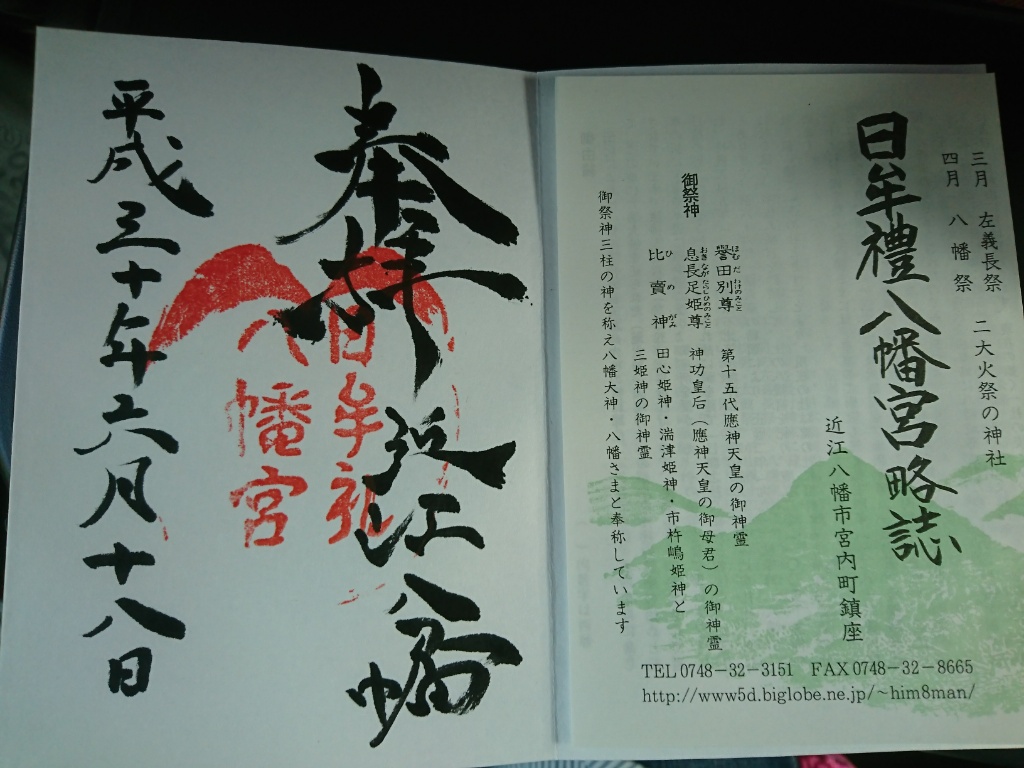 三月 左義長祭 二大火祭の神社
四月 八幡祭
日牟禮八幡宮略誌
近江八幡市宮内町鎮座
御祭神
譽田別尊 第十五代應神天皇の御神霊
ほむだわけのみこと
息長足姫尊 神功皇后（應神天皇の御母君）の御神霊
おきながたらしひめのみこと
比賣神 田心姫神・湍津姫神・市杵嶋姫神と
ひめがみ
三姫神の御神霊
御祭神三柱の神を称え八幡大神・八幡さまと奉称しています
TEL 0748－32－3151 FAX 0748－32－8665
http://www5d.biglobe.ne.jp/~him8man/
奉拝 近江八幡
日牟礼
八幡宮
平成三十年六月十八日